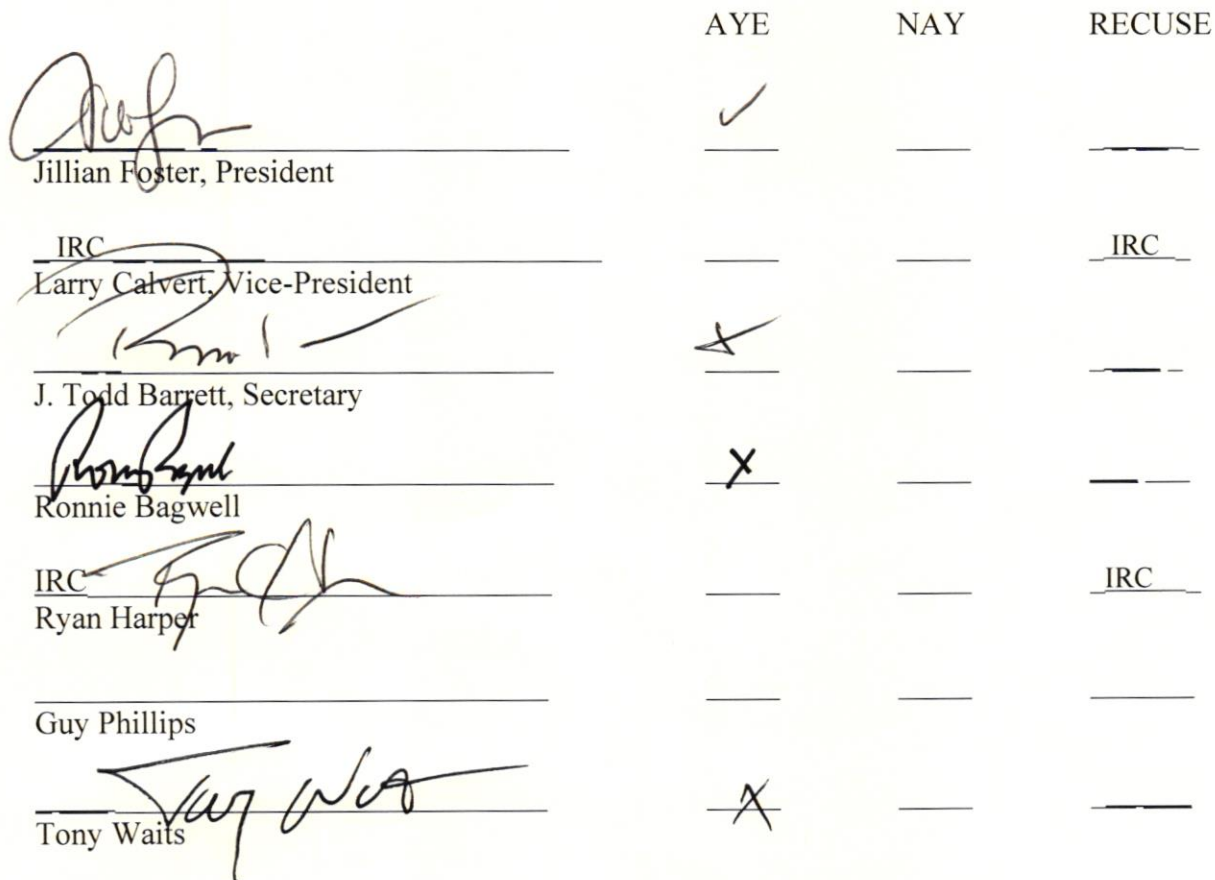 AYE NAY RECUSE
✓
Jillian Foster, President
IRC IRC
Larry Calvert, Vice-President
X
J. Todd Barrett, Secretary
X
Ronnie Bagwell
IRC IRC
Ryan Harper
Guy Phillips
X
Tony Waits